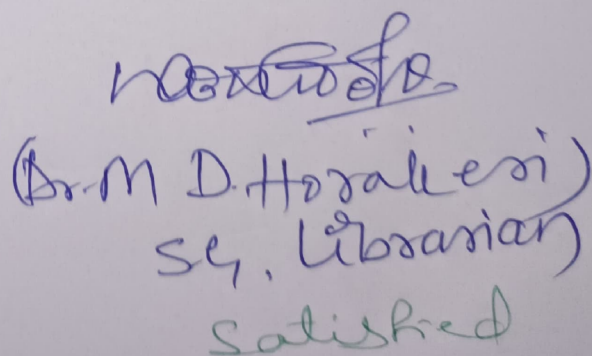 (Dr. M D. Horakeri)
SG. Librarian
Satisfied